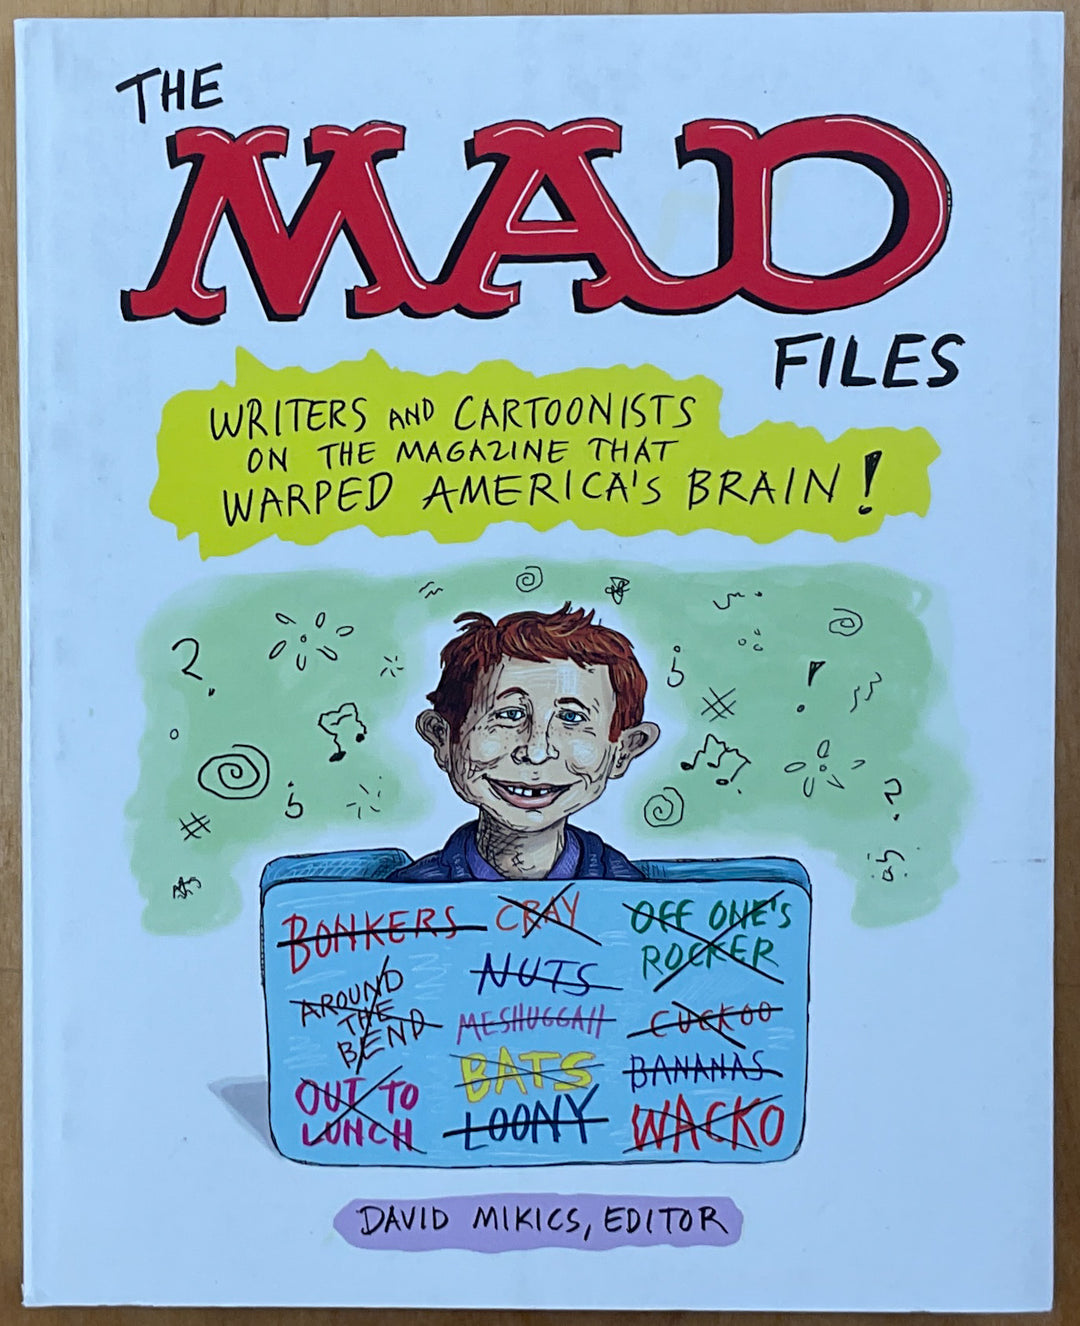 THE
MAD
FILES
WRITERS AND CARTOONISTS
ON THE MAGAZINE THAT
WARPED AMERICA'S BRAIN!
BONKERS
CRAY
OFF ONE'S
ROCKER
AROUND
THE
BEND
NUTS
MESHUGGAH
CUCKOO
BATS
BANANAS
OUT TO
LUNCH
LOONY
WACKO
DAVID MIKICS, EDITOR